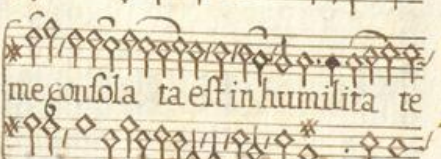 me conſola ta eſt in humilita te